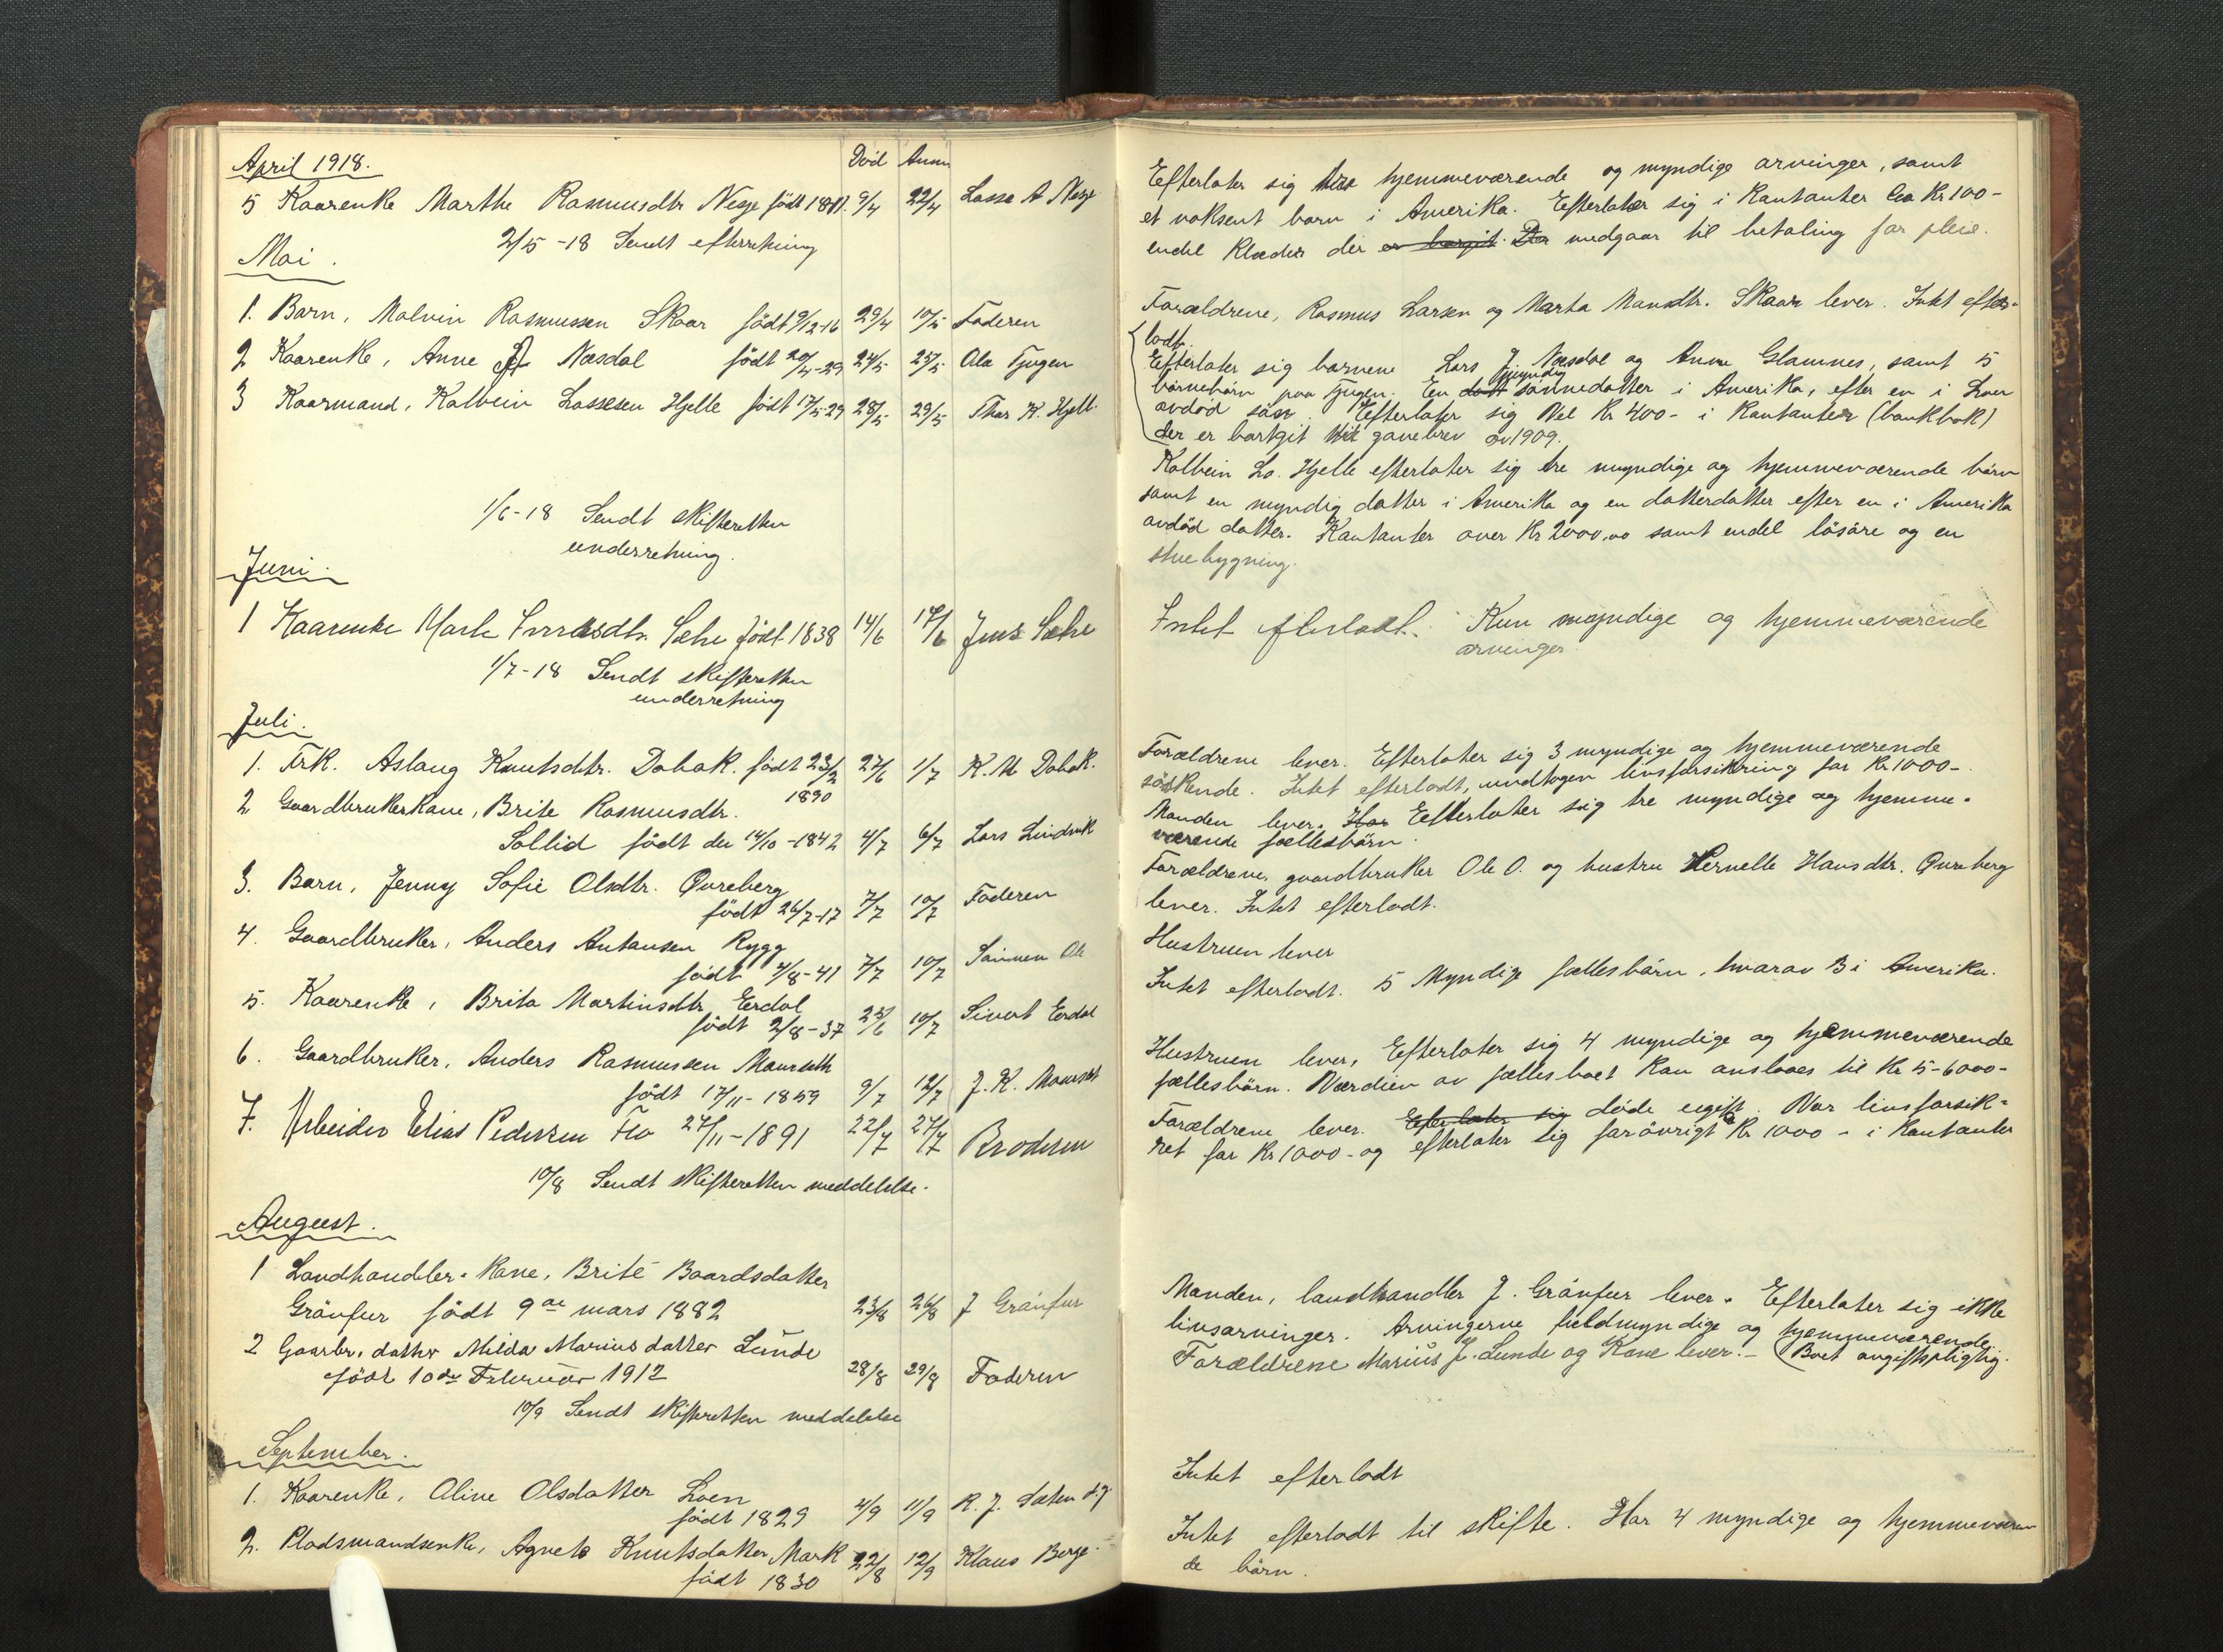 April 1918.
Död Anm
5 Kaarenke Marthe Rasmusdtr Nesje födt 18 9/4 22/4 Lasse A Nesje
2/5 -18 Sendt efterretning
Mai.
1. Barn, Malvin Rasmussen Skaar födt 9/12-16 29/4 10/5 Faderen
2 Kaarenke, Anne Næsdal födt 20/4-29 24/5 25/5 Ola Tjugen
3 Kaarmand, Kolbein Lassesen Hjelle födt 17/5-29 28/5 29/5 Thar K. Hjelle
1/6-18 Sendt skifteretten
underretning.
Juni.
1 Kaarenke Marte Sæhe födt 1838 14/6 17/6 Jens Sæhe
1/7-18 Sendt skifteretten
underretning
Juli.
1. Frk. Aslaug Knutsdtr. Dobak. födt 23/2 27/6 1/7 K. M Dobak.
1890
2 Gaardbrukerkane, Brite Rasmusdtr.
Sollid födt den 14/10 -1842 4/7 6/7 Lars Lindvik
3. Barn, Jenny Sofie Olsdtr. Qvreberg
födt 26/7-17 7/7 10/7 Faderen
4. Gaardbruker, Anders Antonsen Rygg
födt 4/8-41 7/7 10/7 Sönnen Ole
5. Kaarenke, Brita Martinsdtr Eerdal
födt 2/8-37 25/6 10/7 Sivert Erdal
6. Gaardbruker, Anders Rasmussen Maurseth
födt 17/11-1859 9/7 12/7 J. K. Maurset
7. Arbeider Elias Pedersen Flo 27/11-1891 22/7 27/7 Broderen
10/8 Sendt skifteretten meddelelse.
August.
1 Landhandler-kane, Brite Baardsdatter
Grönfur födt 9de mars 1882 23/8 26/8 J Grönfur
2 Gaarbr. datter Milda Mariusdatter Lunde
födt 10de Februar 1912 28/8 29/8 Faderen
10/9 Sendt skifteretten meddelelse
September.
1. Kaarenke, Oline Olsdatter Loen
födt 1829 4/9 11/9 R. J. Sæten
2. Pladsmandsenke, Agnete Knutsdatter Mark 22/8 12/9 Klaus Berge
födt 1830
Efterlater sig tre hjemmeværende og myndige arvinger, samt
et voksent barn i Amerika. Efterlater sig i kantanter ca Kr 100-
endel klæder der er bargit. Der medgaar til betaling for pleie.
Forældrene, Rasmus Larsen og Marta Mansdtr. Skaar lever. Intet efter-
ladt.
Efterlater sig barnene Lars J. Næsdal og Anne Glamnes, samt 5
börnebörn paa Tjugen. En datt myndig sönnedatter i Amerika, efter en i Loen
avdöd sön. Efterlater sig Vel Kr 400- i Kantanter (bankbok)
der er bortgit gavebrev av 1909.
Kolbein La. Hjelle efterlater sig tre myndige og hjemmeværende börn
samt en myndig datter i Amerika og en datterdatter efter en i Amerika
avdöd datter. Kantanter over Kr 2000,00 samt endel lösöre og en
stuebygning.
Intet efterladt. Kun myndige og hjemmeværende
arvinger
Forældrene lever. Efterlater sig 3 myndige og hjemmeværende
söskende. Intet efterladt, undtagen livsforsikring for Kr 1000-
Manden lever. Har Efterlater sig tre myndige og hjemme-
værende fællesbörn.
Forældrene, gaardbruker Ole O. og hustru Pernelle Hansdtr. Qvreberg
lever. Intet efterladt.
Hustruen lever
Intet efterladt. 5 Myndige fællesbörn, hvorav 3 i Amerika.
Hustruen lever, Efterlater sig 4 myndige og hjemmeværende
fællesbörn. Værdien av fællesboet kan anslaaes til Kr 5-6000-
Forældrene lever. Efterlater sig döde ugift. Var livsforsik-
ret for Kr 1000- og efterlater sig forövrigt Kr 1000 - i Kantanter
Manden, landhandler J. Grönfur lever. Efterlater sig ikke
livsarvinger. Arvingerne fuldmyndige og hjemmeværende.
Forældrene Marius J. Lunde og Kone lever. - (Boet avgiftspligtig.
Intet efterladt
Intet efterladt til skifte. Har 4 myndige og hjemmeværen
de börn.